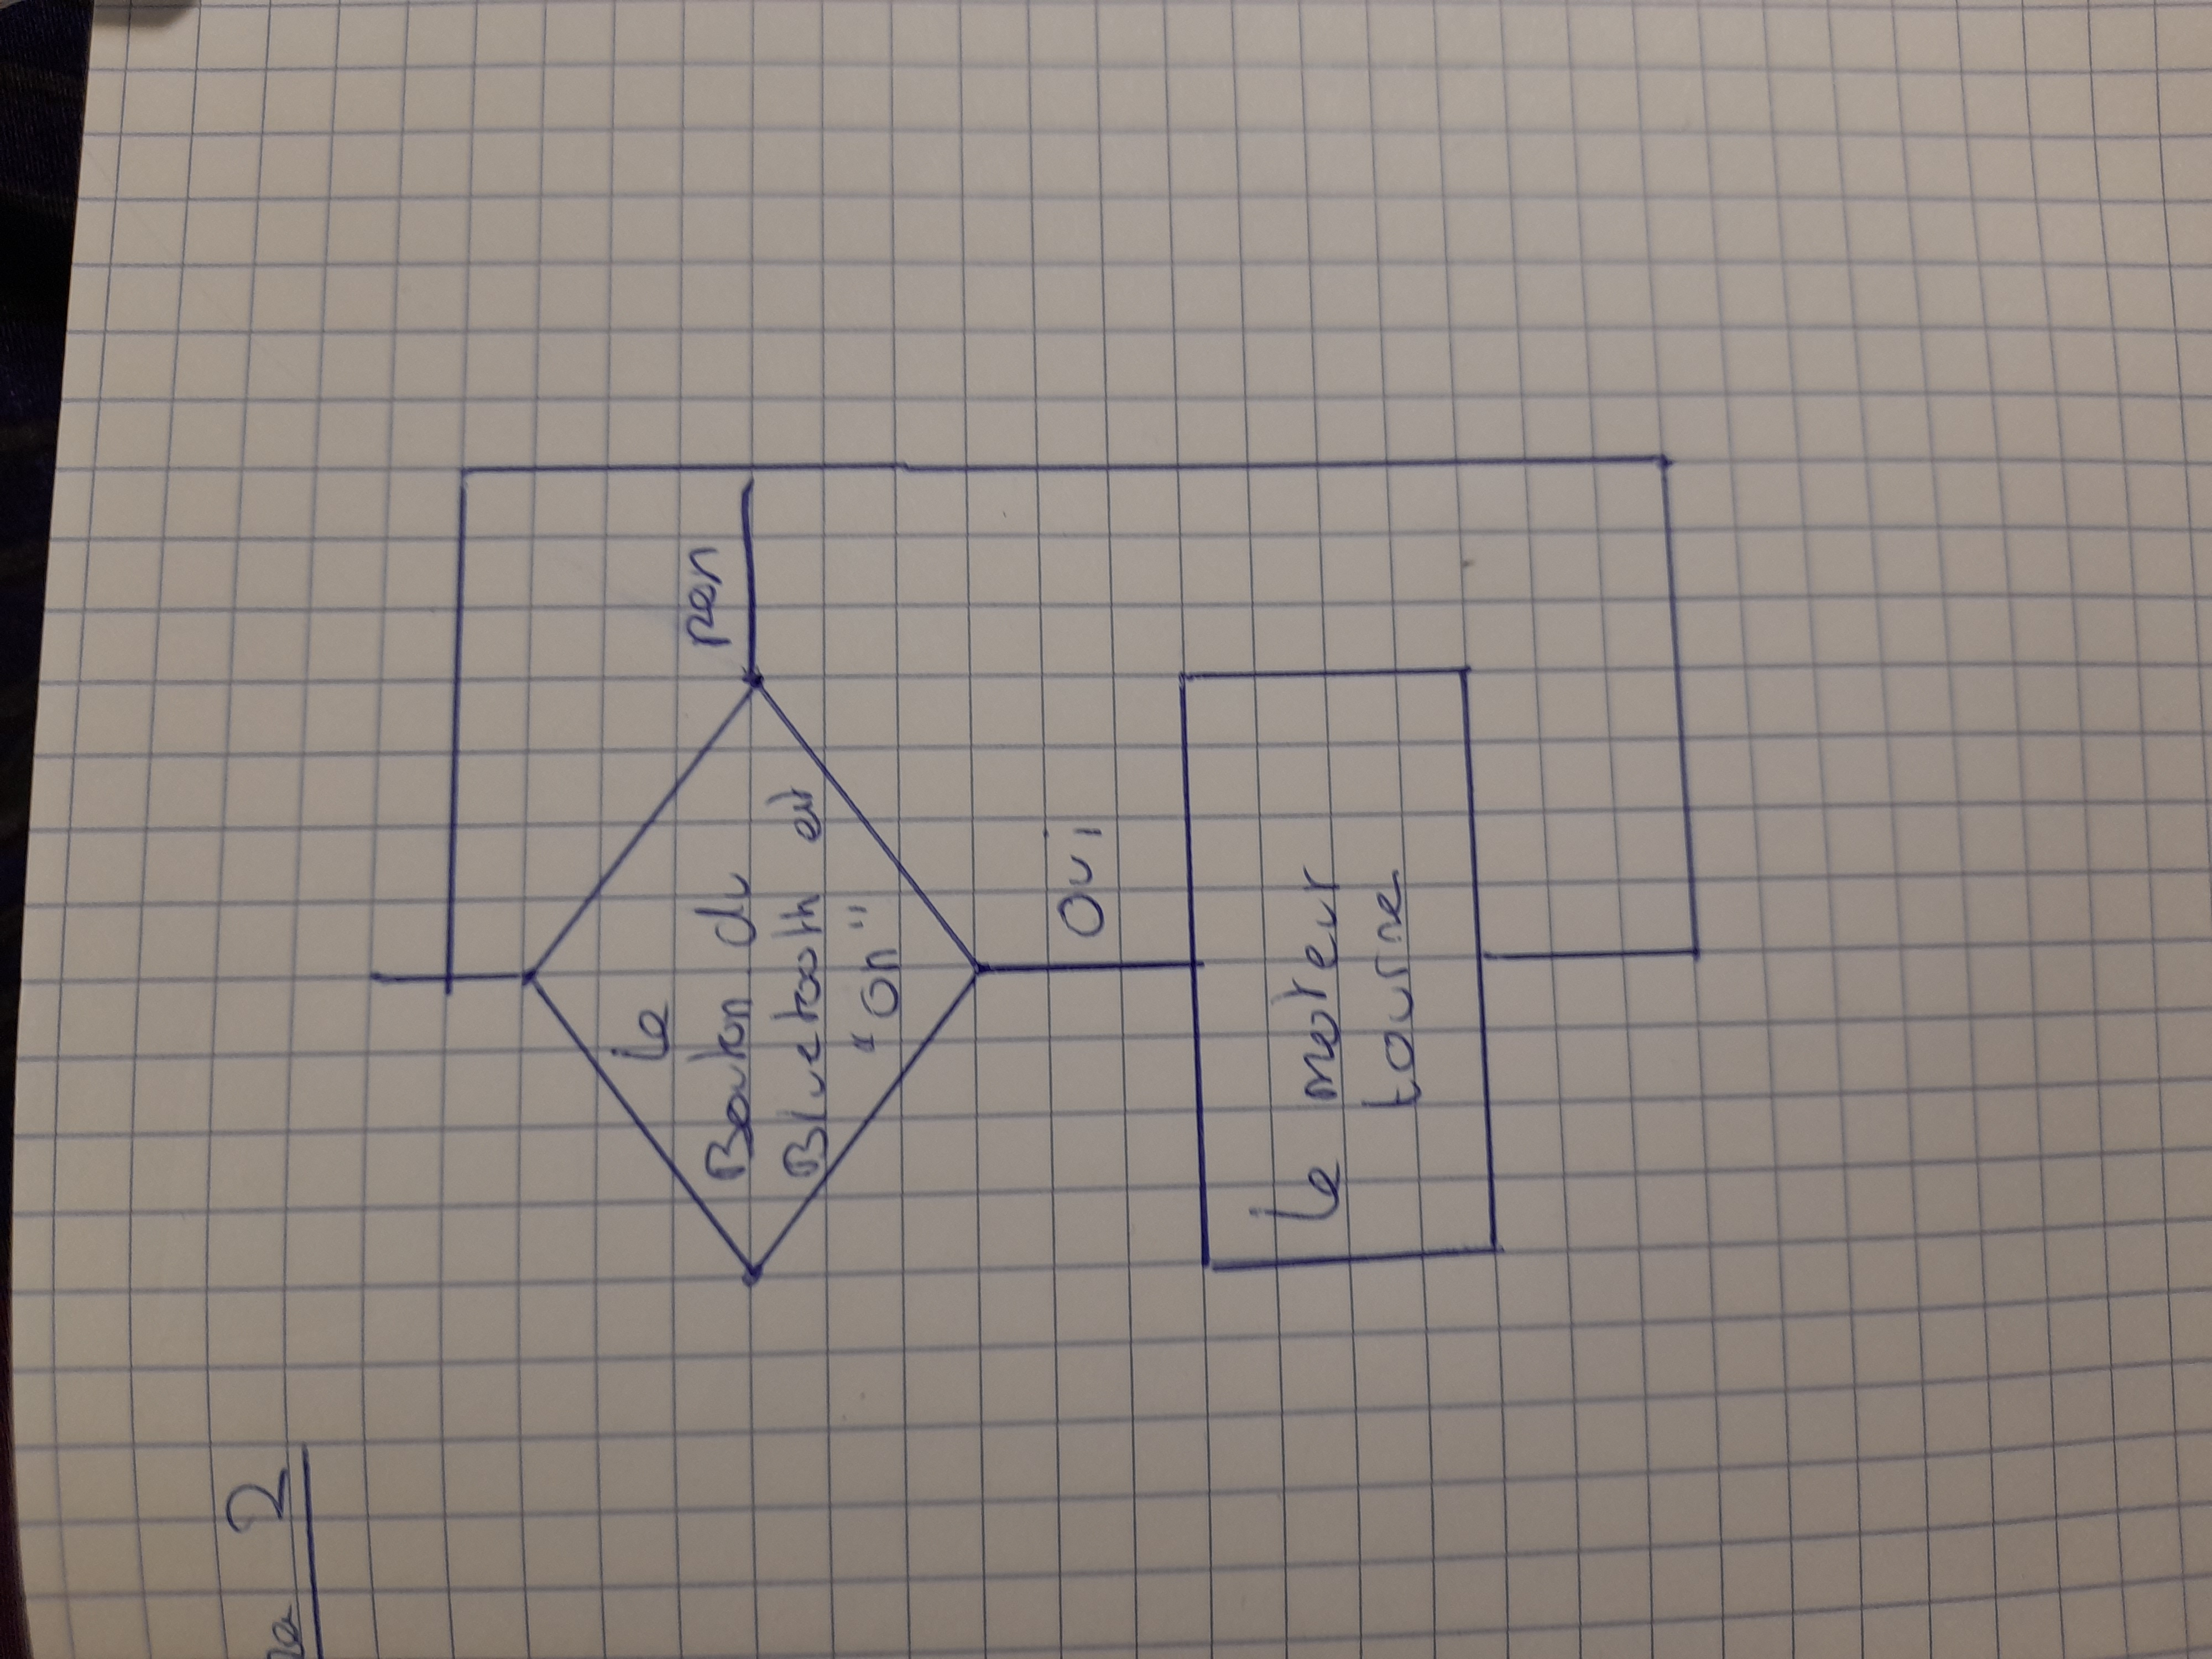 2
Le
Bouton du
Bluetooth est
"on"
non
Oui
Le moteur
tourne